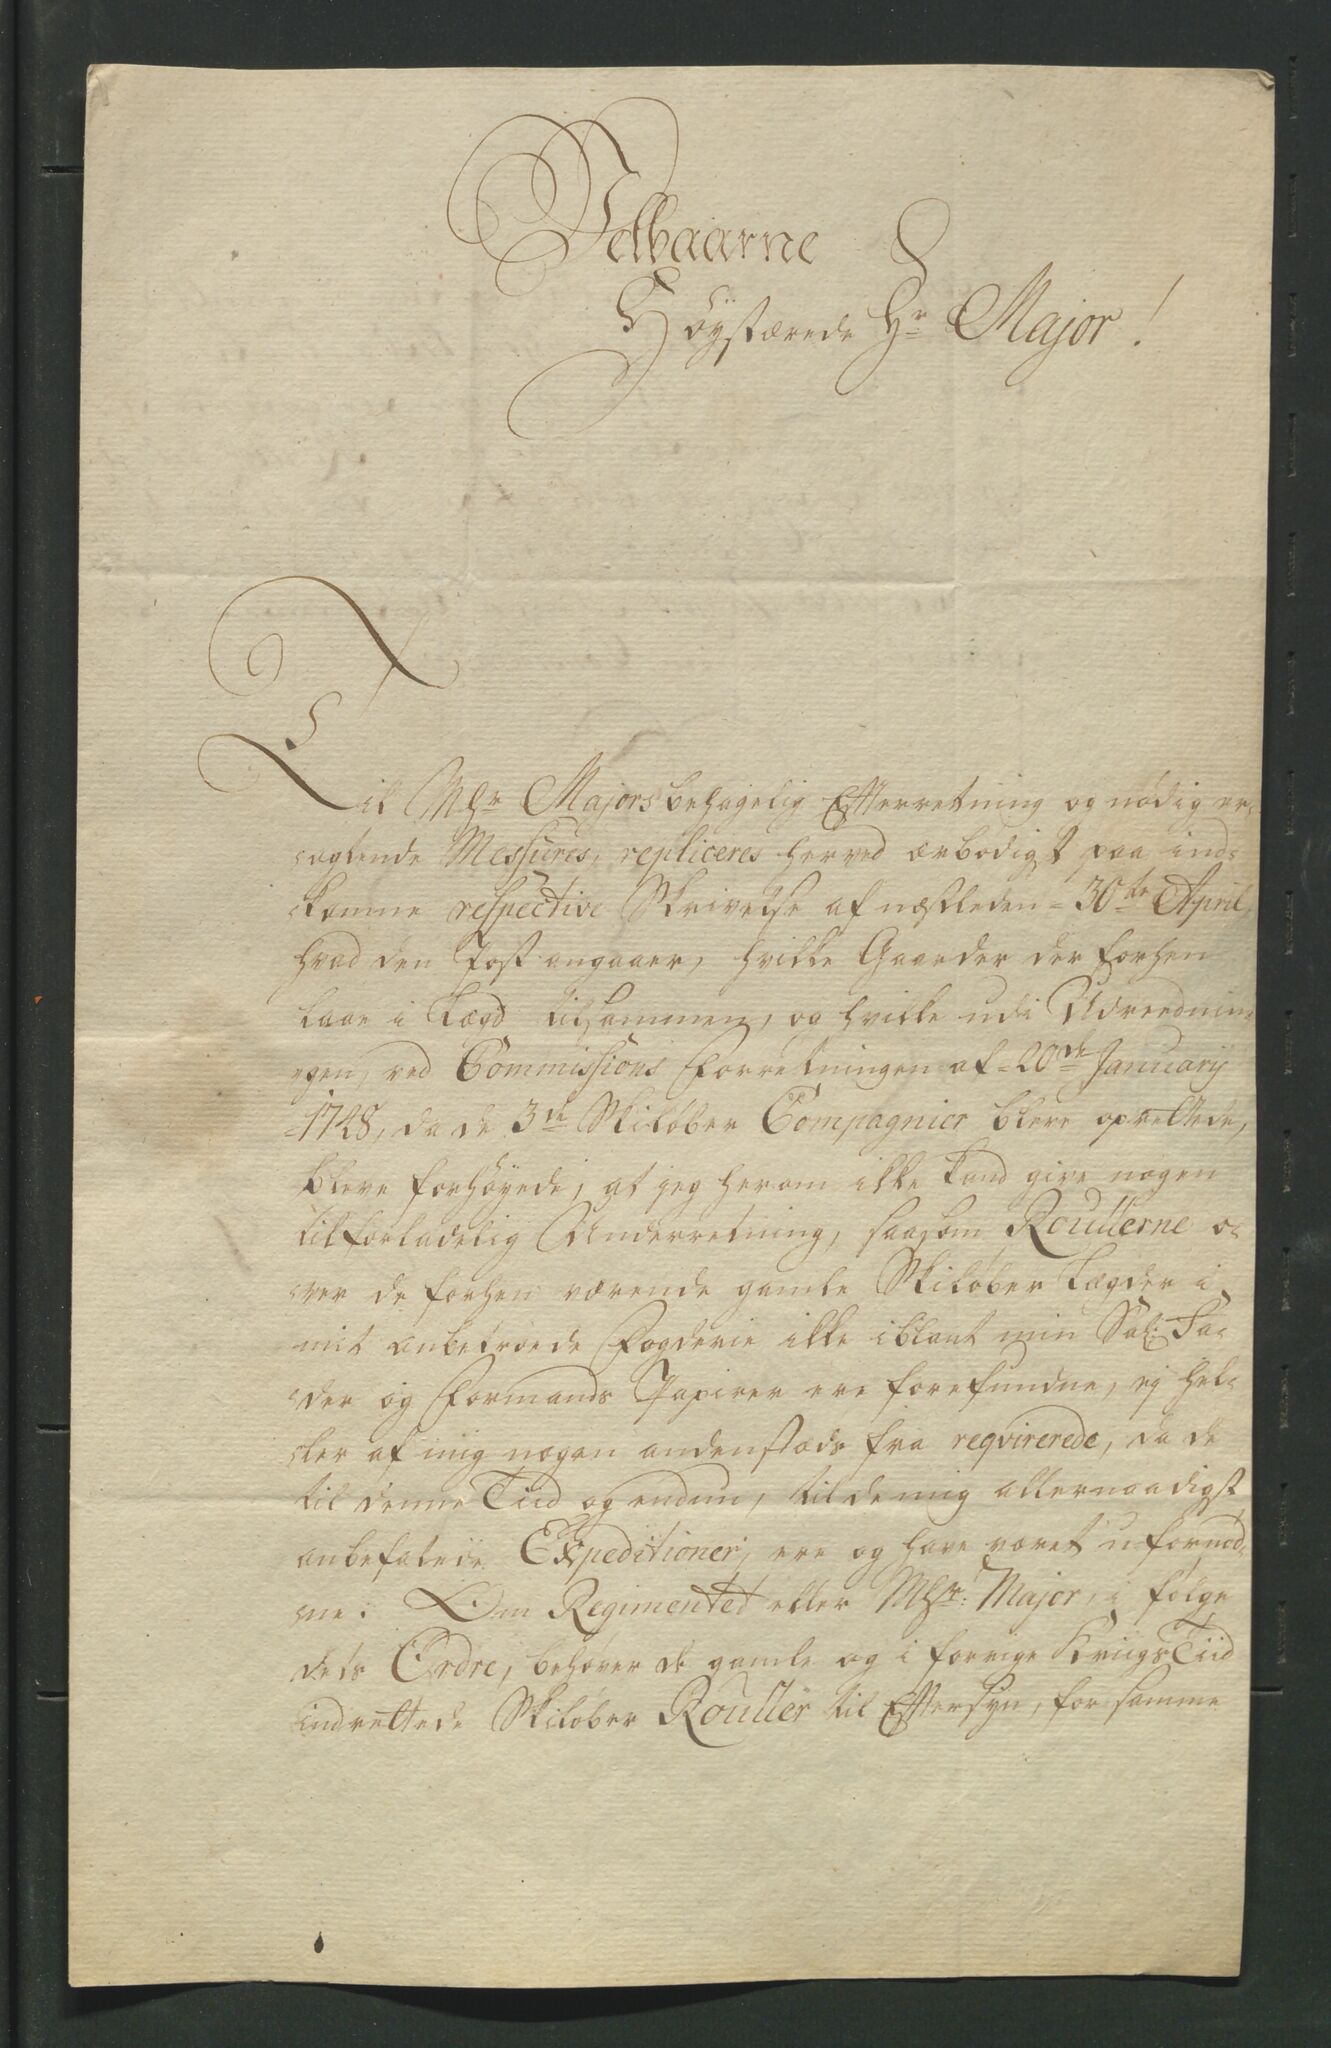 Velbaarne
Høystærede Hr Major!
Til MHr Majors behagelig Efterretning og nødig er¬
¬agtende Messures, repliceres herved ærbødigst paa ind¬
¬komne respective Skrivelse af næstleden 30te April,
hvad den Post angaaer, hvilke Gaarder der forhen
laae i Lægd tilsammen, og hvilke udi Udreednin¬
¬gen, ved Commissions Forretningen af 20de Januarij
1748, da de 3de Skiløber Compagnier bleve oprettede,
bleve forhøyede, at jeg herom ikke kand give nogen
tilforladelig Underretning, saasom Roullerne o¬
¬ver de forhen værende gamle Skiløber Lægder i
mit anbetroede Fogderie ikke iblant min Sal: Fa¬
¬der og Formands Papirer ere forefundne, ej hel¬
¬ler af mig nogen andenstæds fra reqvirerede, da de
til denne Tiid og endnu, til de mig allernaadigst
anbefalede Expeditioner, ere og have været ufornød¬
¬ne. Om Regimentet eller MHr: Major, i følge
dets Ordre, behøver de gamle og i forrige Kriigs Tiid
indrettede Skiløber Rouller til Eftersyn, for samme